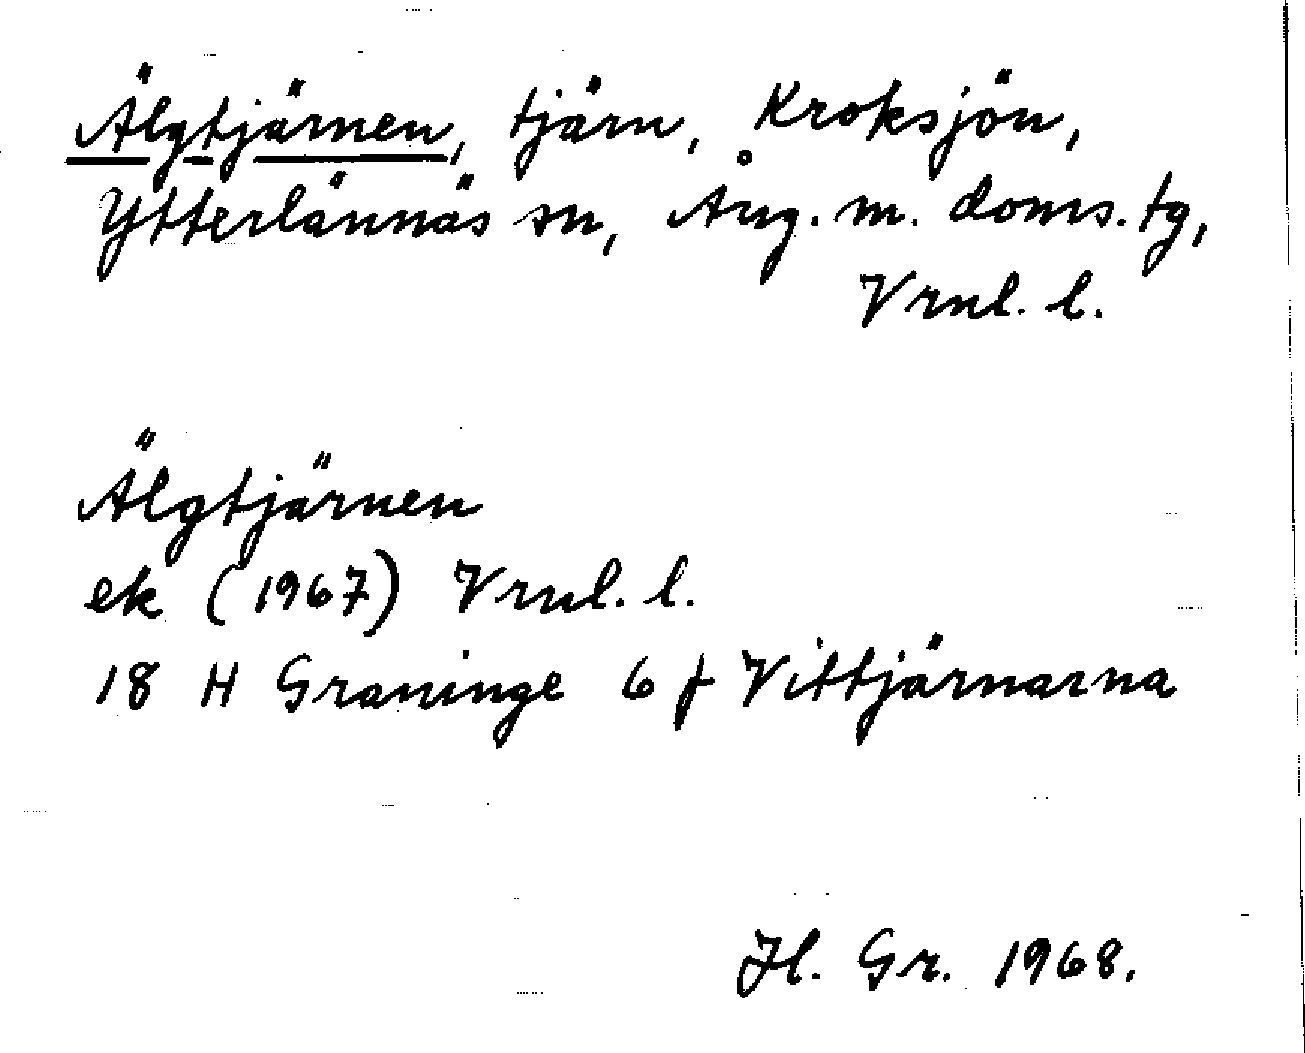 Älgtjärnen, tjärn, Kroksjön,
Ytterlännäs sn, Ång. m. doms. tg,
Vrnl. l.
Älgtjärnen
ek (1967) Vrnl. l.
18 H Graninge 6 f Vittjärnarna
Hl. Gr. 1968.